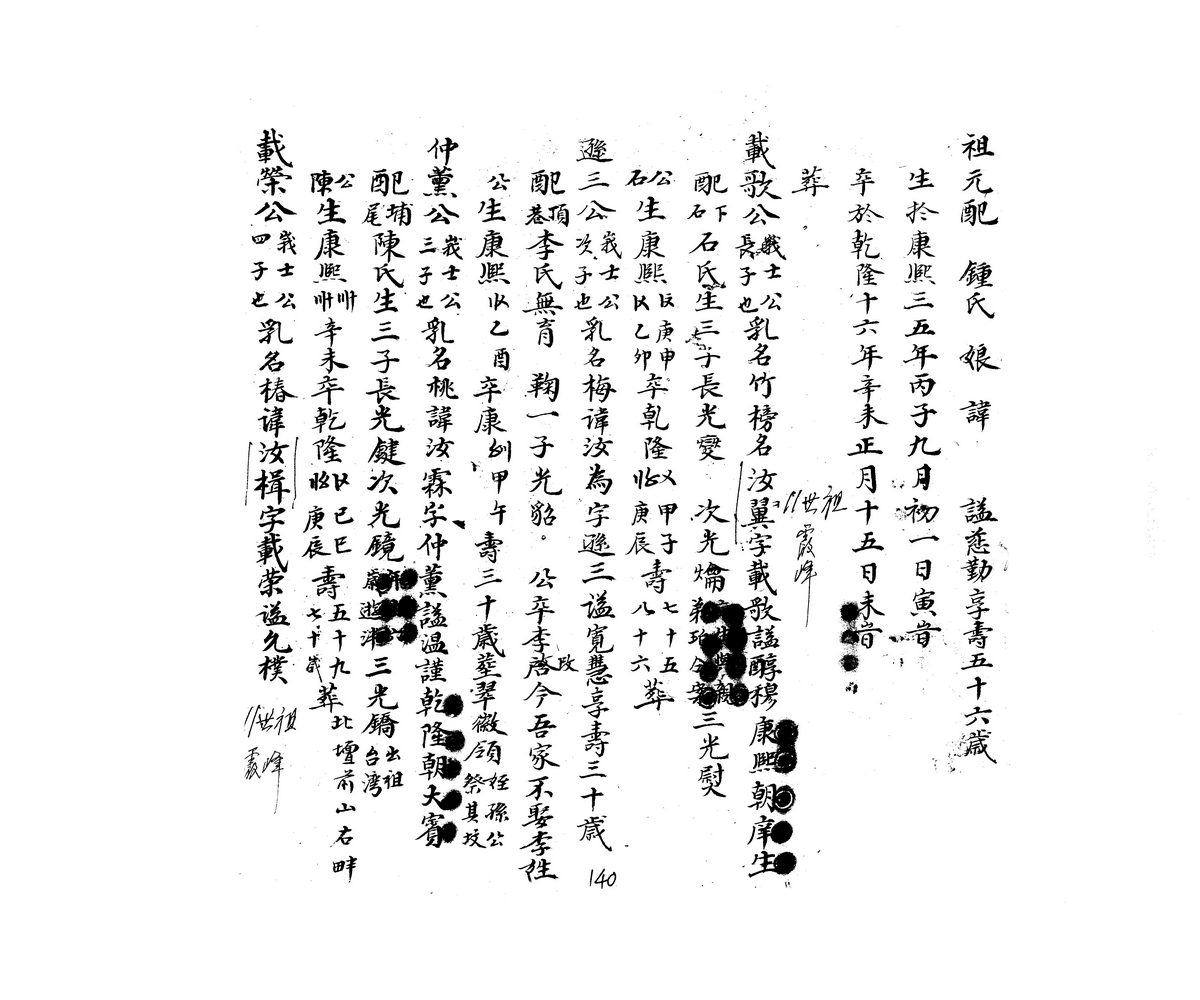 祖元配　鍾氏　娘　諱　　謚慈勤享壽五十六歲
生於康熙三五年丙子九月初一日寅時
卒於乾隆十六年辛未正月十五日未時
葬
11世祖
霞峰
載歌公義士公長子也乳名竹榜名汝翼字載歌謚醇穆康熙朝庠生
配下石石氏生三子長光變　次光爚三光熨
公石生康熙庚申乙卯卒乾隆甲子庚辰壽七十五八十六葬
遜三公義士公次子也乳名梅諱汝為字遜三謚寬慧享壽三十歲
配頂巷李氏無育　鞠一子光貂。　公卒李改啓今吾家不娶李姓
公生康熙乙酉卒康甲午壽三十歲葬翠徽領姪孫公祭其坟
仲薰公義士公三子也乳名桃諱汝霖字仲薰謚温謹乾隆朝大賓
配埔尾陳氏生三子長光鍵次光鏡三光鐈出祖台湾
公陳生康熙辛未卒乾隆己巳庚辰壽五十九七十歲葬北壇前山右畔
載榮公義士公四子也乳名椿諱汝楫字載榮謚允樸
11世祖
霞峰
140